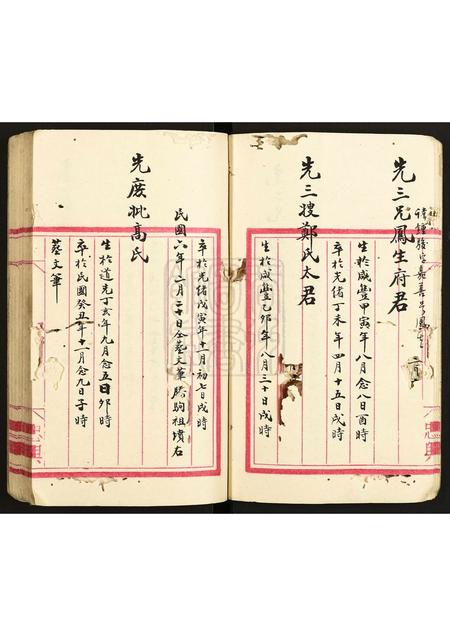 諱鍾駿字嘉善號鳳生
先三兄鳳生府君
生於咸豐甲寅年八月念八日酉時
卒於光緒丁未年四月十五日戌時
先三嫂鄭氏太君
生於咸豐乙卯年八月三十日戌時
卒於光緒戊寅年十一月初七日戌時
民國六年一月二十日仝葬文筆 駒祖墳右
先庶妣高氏
生於道光丁亥年九月念五日卯時
卒於民國癸丑年十一月念九日子時
葬文筆
忠興
忠興